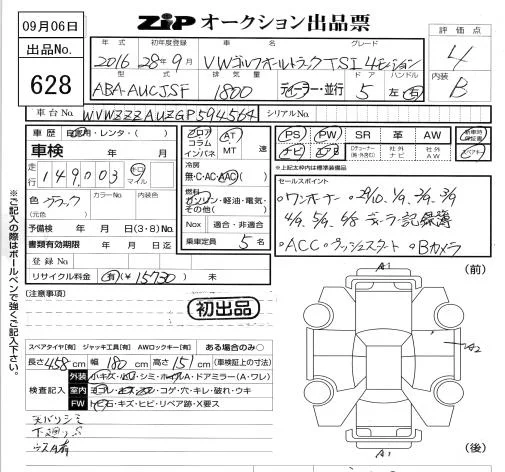 09月06日
出品No.
628
ZiP オークション出品票
年式 初年度登録 車名 グレード
2016 28年9月 VWゴルフオールトラックTSI 4モーション
型式 排気量 ドア ハンドル
ABA-AUCJSF 1800 ディーラー・並行 5 左 右
評価点
4
内装
B
車台No WVWZZZAUZGP594564 シリアルNo
車歴 自家用・レンタ・( )
車検 年 月
走行 149,003 キロ マイル
色 ブラック カラーNo. 内装色
(元色)
予備検 年 月 日(3・8)No.
書類有効期限 年 月 日迄
登録No
リサイクル料金 有(¥15730) 未
フロア コラム インパネ AT MT 速
冷房
無・C・AC・AAC( )
燃料
ガソリン・軽油・電気・その他( )
Nox 適合・非適合
乗車定員 5 名
PS PW SR 革 AW 新車時保証書
ナビ エアB 社外ナビ 社外AW
※上記太枠内は標準装備品
セールスポイント
・ワンオーナー ・29/10, 1/9, 2/9, 3/9
4/9, 5/9, 6/8 ディーラー記録簿
・ACC ・プッシュスタート ・Bカメラ
※ご記入の際はボールペンで強くご記入下さい。
[注意事項]
初出品
スペアタイヤ[有] ジャッキ工具[有] AWロックキー[有] ある場合のみ〇
長さ 458 cm 幅 180 cm 高さ 151 cm (車検証上の寸法)
検査記入
外装 小キズ・シミ・ホイルA・ドアミラー(A・ワレ)
室内 ヨゴレ・コゲ・穴・キレ・破れ・ウキ
FW トビ石・キズ・ヒビ・リペア跡・X要ス
天バリシミ
下廻りS
ウスA有
(前)
A1
A2
A1
(後)